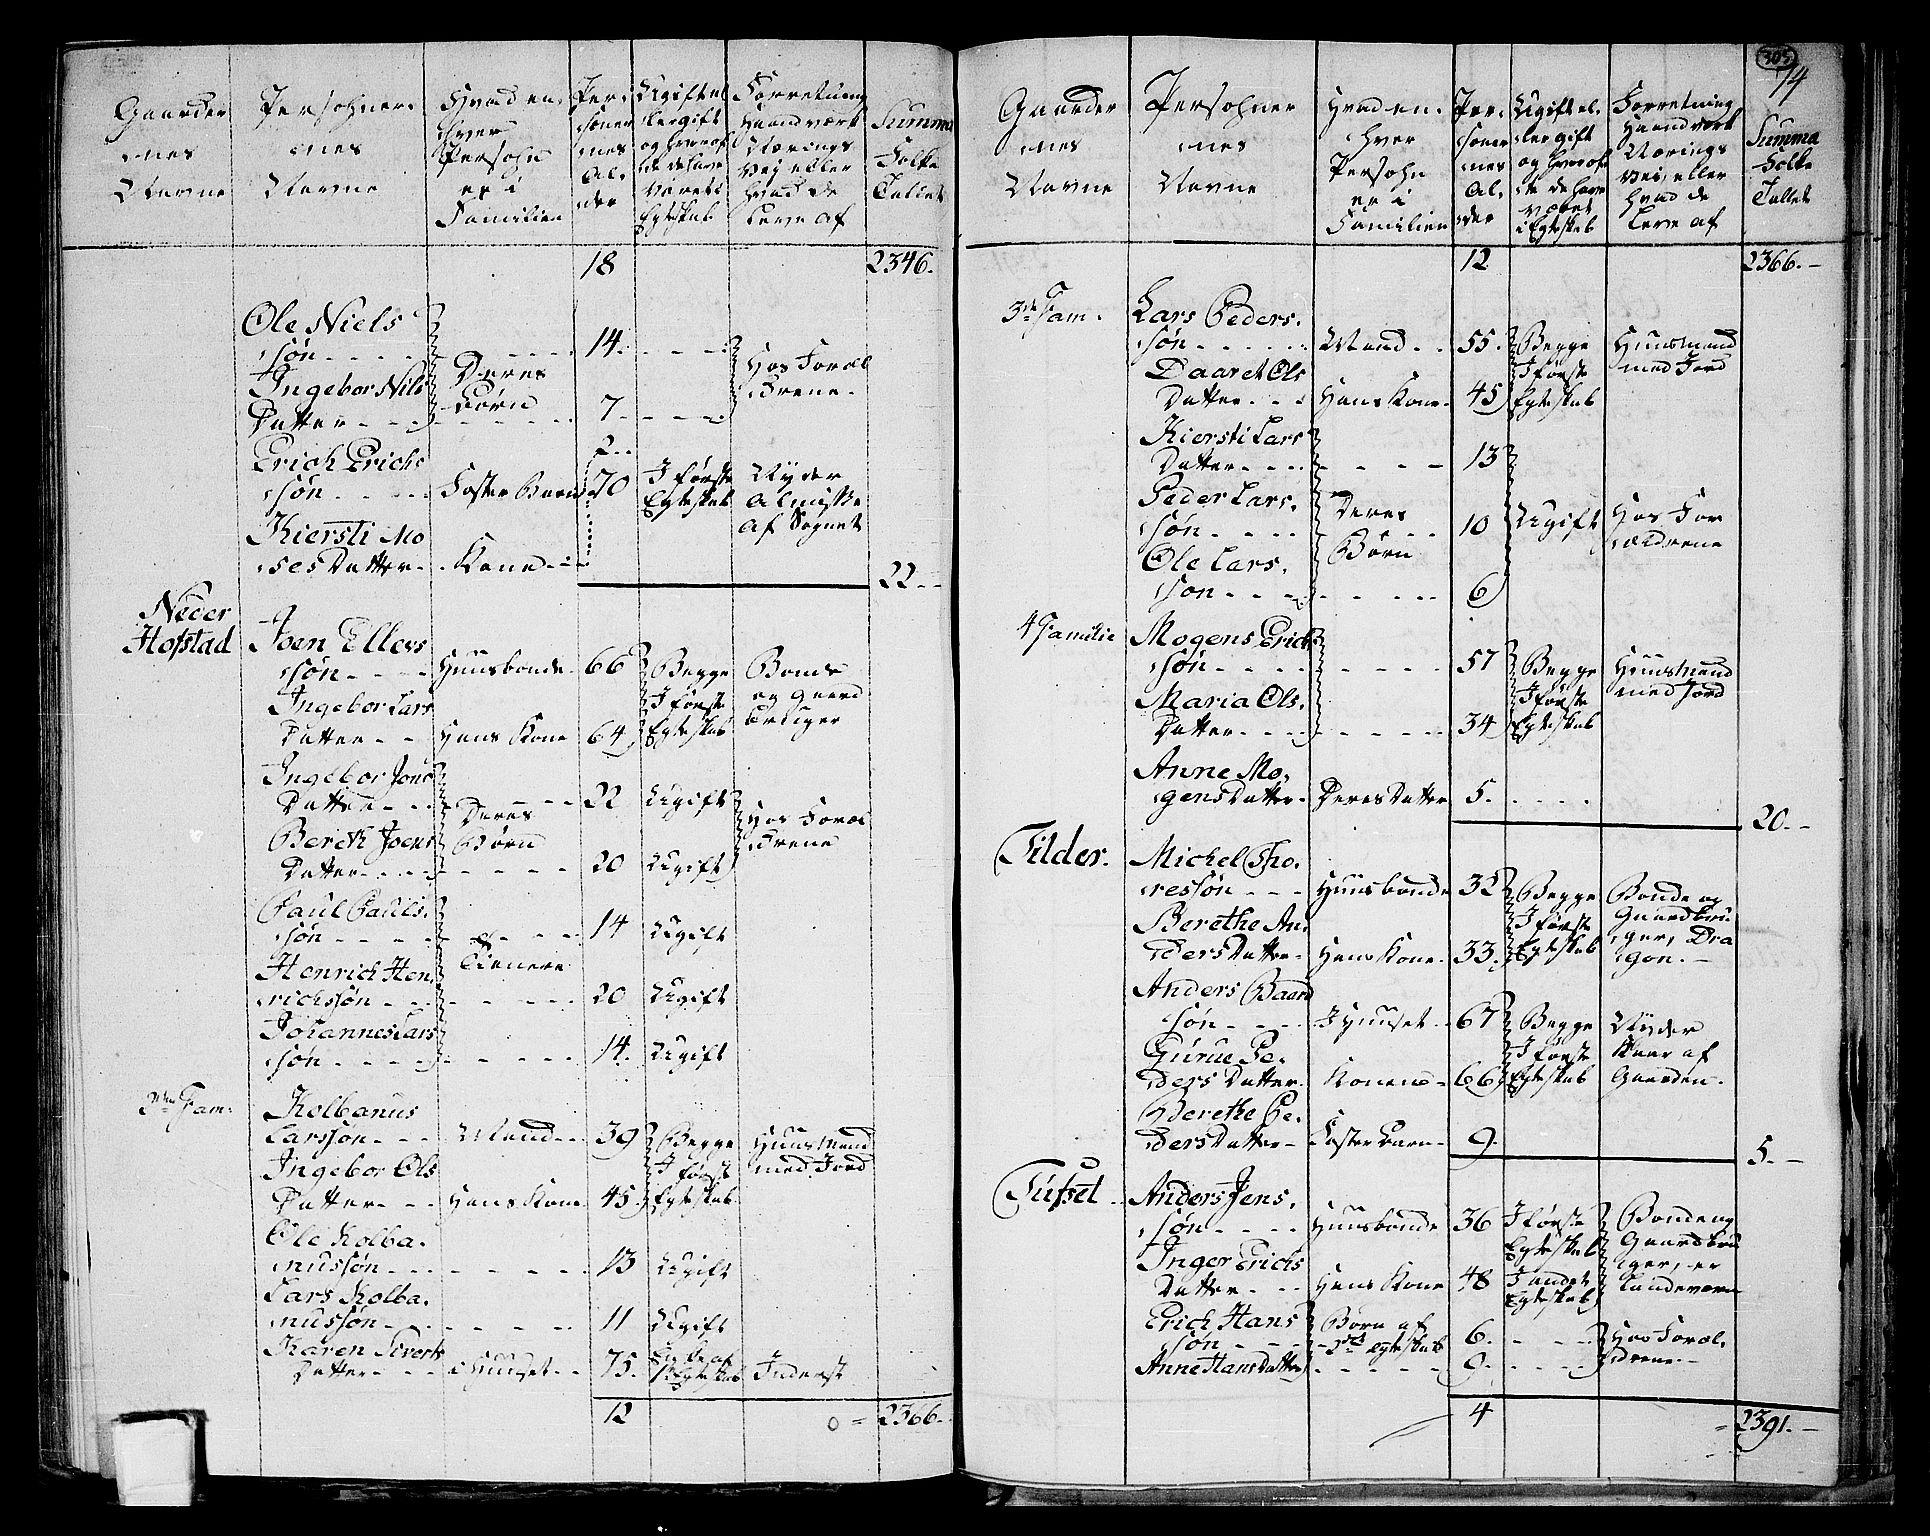 Gaarder
nes
Navne
Persohner
nes
Navne
Hvad en
hver
Persohn
er i
Familien
Per-
soner
nes
Al-
der
Ugift el
ler gift
og hvor of
te de have
været i
Egteskab
Forretning
Haandværk
Nærings
Vej eller
hvad de
Leve af
Summa
Folke
Tallet
18
2346.
Ole Niels
søn - - - - 14. - - -
Deres
Børn
Hos Foræl
drene.
Ingebor Nils
Datter - - - 7. - - -
2..
Erich Erichs
søn - - - - Foster Barn 70 I første
Egteskab
Nyder
Almisse
af Sognet
Kiersti Mo
sesDatter - Kone - -
22 - -
Neder
Hofstad
Joen Ellers
søn - - - Huusbonde - 66 Begge
I første
Egteskab
Bonde
og Gaard
bruger
Ingebor Lars
Datter - - Hans Kone 64
Ingebor Jons
Datter - - - - 22 Ugift
Deres
Børn
Hos Foræl
drene
Berith Joens
Datter - - - - 20 Ugift
Paul Pauls.
søn - - - - 14 Ugift
Tienere
Henrich Hen,
richssøn - - - 20 Ugift
Johannes Lars
søn - - - - 14. Ugift
2den Fam.
Kolbanus
Larssøn - - - Mand - - 39 Begge
I første
Egteskab
Huusmand
med Jord
Ingebor Ols
Datter - - - Hans Kone 45
Ole Kolba.
nussøn - - - - 13 Ugift
Lars Kolba.
nussøn - - - - 11 Ugift
Karen Siverts
Datter - - - I Huuset - - 75. Egteskab Inderst
12
= 2366.
305
74
Gaarder
nes
Navne
Persohner
nes
Navne
Hvad en
hver
Persohn
er i
Familien
Per-
soner
nes
Al-
der
Ugift el-
ler gift
og hvor of
te de have
været
i Egteskab
Forretning
Haandværk
Nærings
Vei, eller
hvad de
Leve af
Summa
Folke
Tallet
12
2366.-
3de Fam.
Lars Peders.
søn - - - - Mand - - 55. Begge
I første
Egteskab
Huusmand
med Jord
Daaret Ols
Datter - - - Hans Kone - 45
Kiersti Lars
Datter - - - - - - 13
Peder Lars.
søn - - - - 10 Ugift
Deres
Børn
Hos For
ældrene
Ole Lars.
søn - - - - - - - 6
4 Familie
Mogens Erich
søn - - - - - - - 57 Begge
I første
Egteskab
Huusmand
med Jord
Maria Ols.
Datter - - - - - - - 34
Anne Mo,
gensDatter - Deres Datter 5. - - - -
20.-
Tilder.
Michel Tho.
ressøn - - - Huusbonde 32 Begge
I første
Egteskab
Bonde og
Gaardbru
ger, Dra
gon. -
Berethe An,
dersDatter - Hans Kone - 33.
Anders Baard
søn - - - I Huuset - - 67 Begge
I første
Egteskab
Nyder
Kaar af
Gaarden.
Gurue Pe.
ders Datter. Konens - 66
Berethe Pe.
dersDatter - Foster Barn - 9.
5. -
Tufset
Anders Jens.
søn - - - - Huusbonde 36 I første
Egteskab
Bonde og
Gaardbru
ger, er
Landeværn
Inger Erichs
Datter - - - Hans Kone 48 I andet
Egteskab
Erich Hans
søn - - - - 6. - - -
Børn af
Egteskab
Hos Foræl.
drene -
Anne HansDatter - - - - 9. - - -
4
= 2391.-